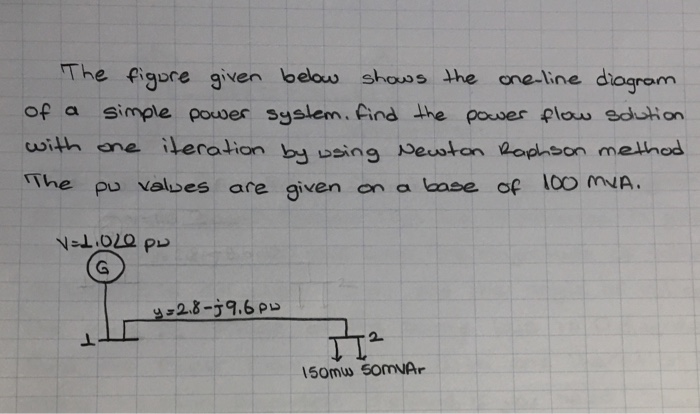 The figure given below shows the one-line diagram
of a simple power system. find the power flow solution
with one iteration by using Newton Raphson method
The pu values are given on a base of 100 MVA.
V=1.0∠0 pu
G
y=2.8-j9.6 pu
1
2
150mw 50mVAr